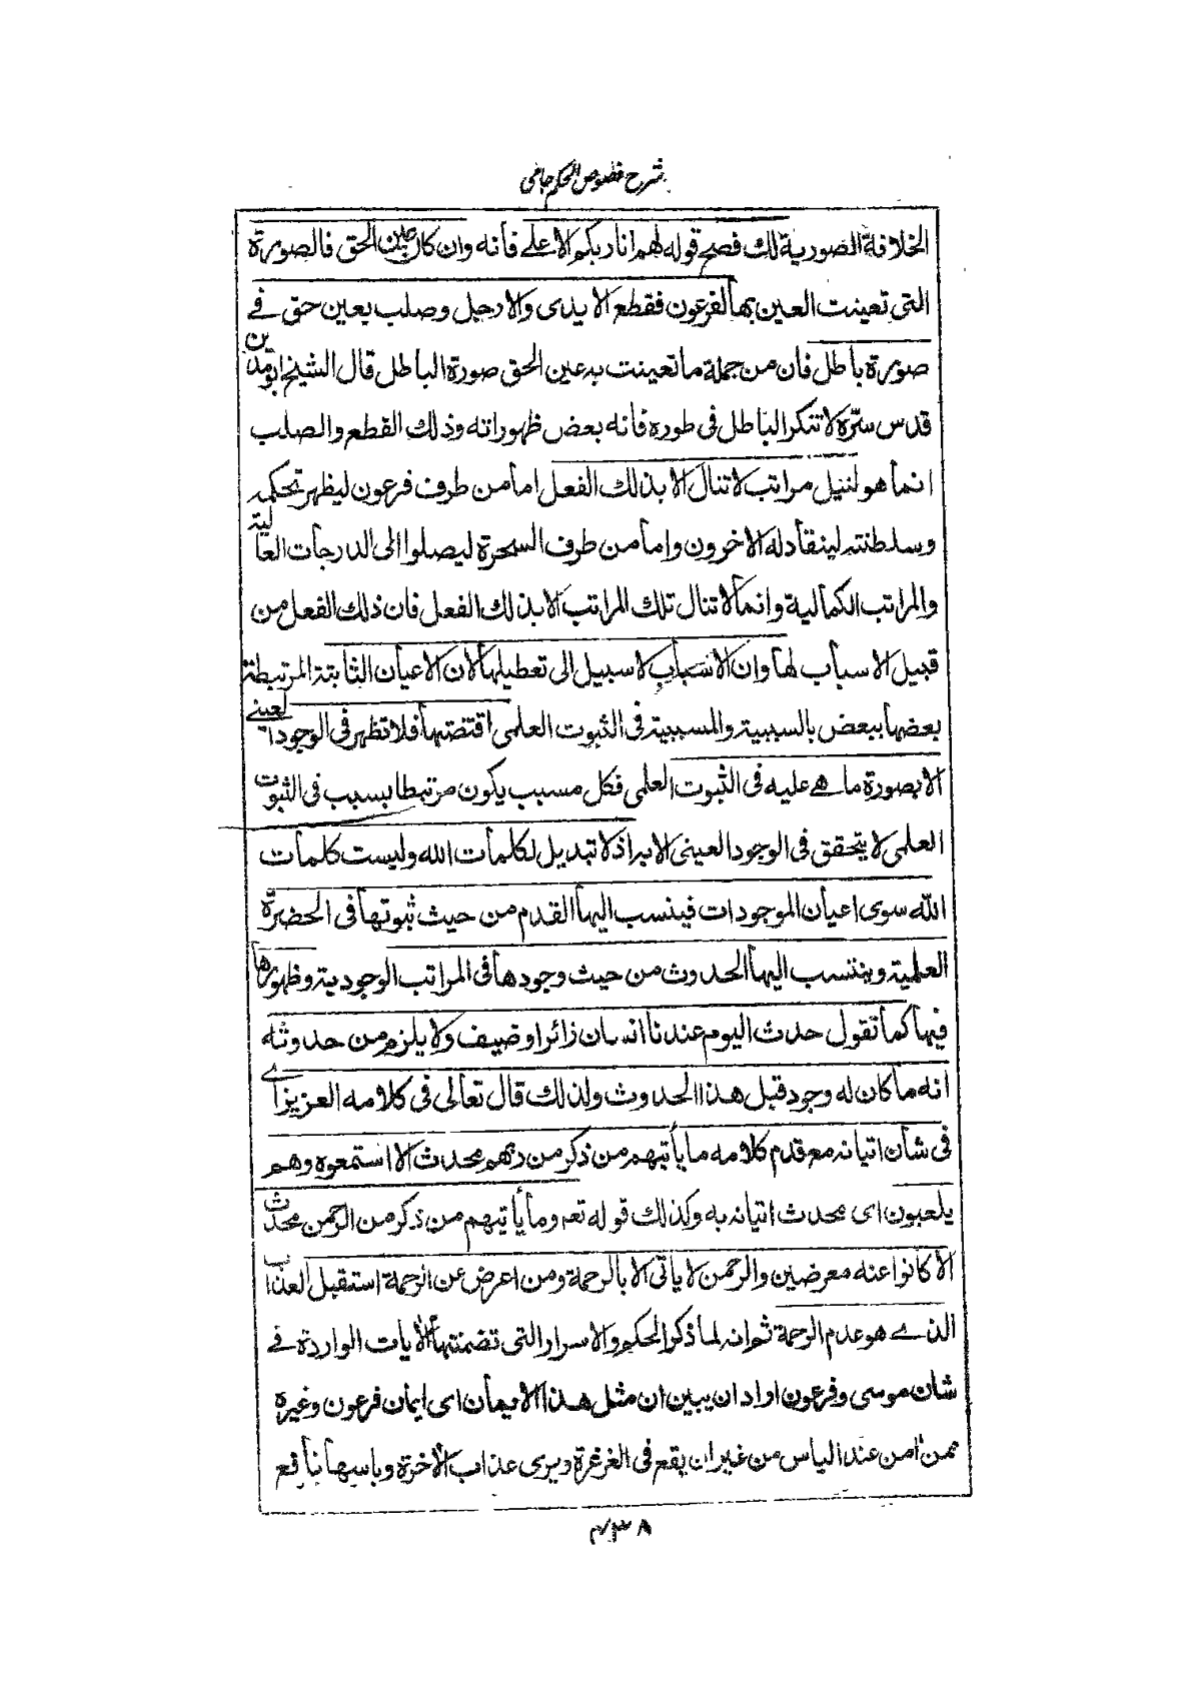 شرح فصوص الحكم جامى
الخلافة الصورية لك فصح قوله لهم انا ربكم الاعلى فانه وان كان عين الحق فالصورة
التى تعينت العين بها لفرعون فقطع الايدى والارجل وصلب بعين حق فى
صورة باطل فان من جملة ما تعينت به عين الحق صورة الباطل قال الشيخ ابومدين
قدس سره لا تنكر الباطل فى طوره فانه بعض ظهوراته وذلك القطع والصلب
انما هو لنيل مراتب لا تنال الا بذلك الفعل اما من طرف فرعون ليظهر تحكمه
وسلطنته لينقاد له الاخرون واما من طرف السحرة ليصلوا الى الدرجات العالية
والمراتب الكمالية وانما لا تنال تلك المراتب الا بذلك الفعل فان ذلك الفعل من
قبيل الاسباب لها وان الاسباب لا سبيل الى تعطيلها لان الاعيان الثابتة المرتبطة
بعضها ببعض بالسببية والمسببية فى الثبوت العلمى اقتضتها فلا تظهر فى الوجود العينى
الا بصورة ما هى عليه فى الثبوت العلمى فكل مسبب يكون مرتبطا بسبب فى الثبوت
العلمى لا يتحقق فى الوجود العينى الا به اذ لا تبديل لكلمات الله وليست كلمات
الله سوى اعيان الموجودات فينسب اليها القدم من حيث ثبوتها فى الحضرة
العلمية وينتسب اليها الحدوث من حيث وجودها فى المراتب الوجودية وظهورها
فيها كما تقول حدث اليوم عندنا انسان زائرا وضيف ولا يلزم من حدوثه
انه ما كان له وجود قبل هذا الحدوث ولذلك قال تعالى فى كلامه العزيز اى
فى شان اتيانه مع قدم كلامه ما يأتيهم من ذكر من ربهم محدث الا استمعوه وهم
يلعبون اى محدث اتيانه به وكذلك قوله تعـ وما يأتيهم من ذكر من الرحمن محدث
الا كانوا عنه معرضين والرحمن لا ياتى الا بالرحمة ومن اعرض عن الرحمة استقبل العذاب
الذى هو عدم الرحمة ثم انه لما ذكر الحكم والاسرار التى تضمنتها الآيات الواردة فى
شان موسى وفرعون اراد ان يبين ان مثل هذا الايمان اى ايمان فرعون وغيره
ممن آمن عند الياس من غير ان يقع فى الغرغرة ويرى عذاب الآخرة وباسها نافع
۴۳۸